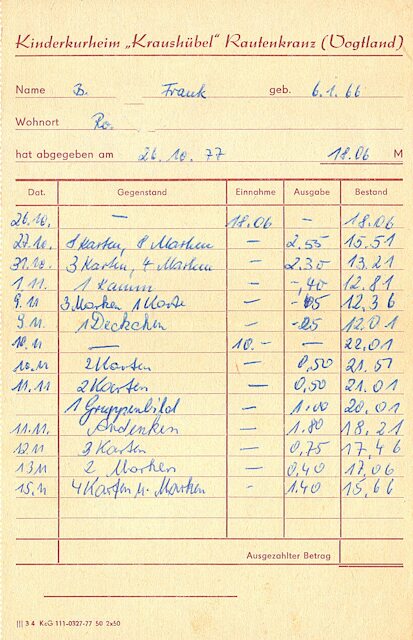 Kinderkurheim „Kraushübel" Rautenkranz (Vogtland)
Name B. Frank geb. 6.1.66
Wohnort Ro.
hat abgegeben am 26.10.77 18.06 M
Dat. Gegenstand Einnahme Ausgabe Bestand
26.10. — 18.06 — 18.06
27.10. 8 Karten, 8 Marken — 2.55 15.51
31.10. 3 Karten, 4 Marken — 2.30 13.21
1.11. 1 Kamm — -,40 12.81
9.11 3 Marken, 1 Karte — -,45 12,36
9.11 1 Deckchen — -,35 12.01
10.11 — 10.- — 22.01
10.11 2 Karten — 0,50 21.51
11.11 2 Karten — 0,50 21.01
1 Gruppenbild — 1.00 20.01
11.11. Andenken — 1.80 18.21
12.11 3 Karten — 0,75 17,46
13.11 2 Marken — 0,40 17,06
15.11 4 Karten u. Marken — 1.40 15,66
Ausgezahlter Betrag
||| 3 4 KcG 111-0327-77 50 2x50